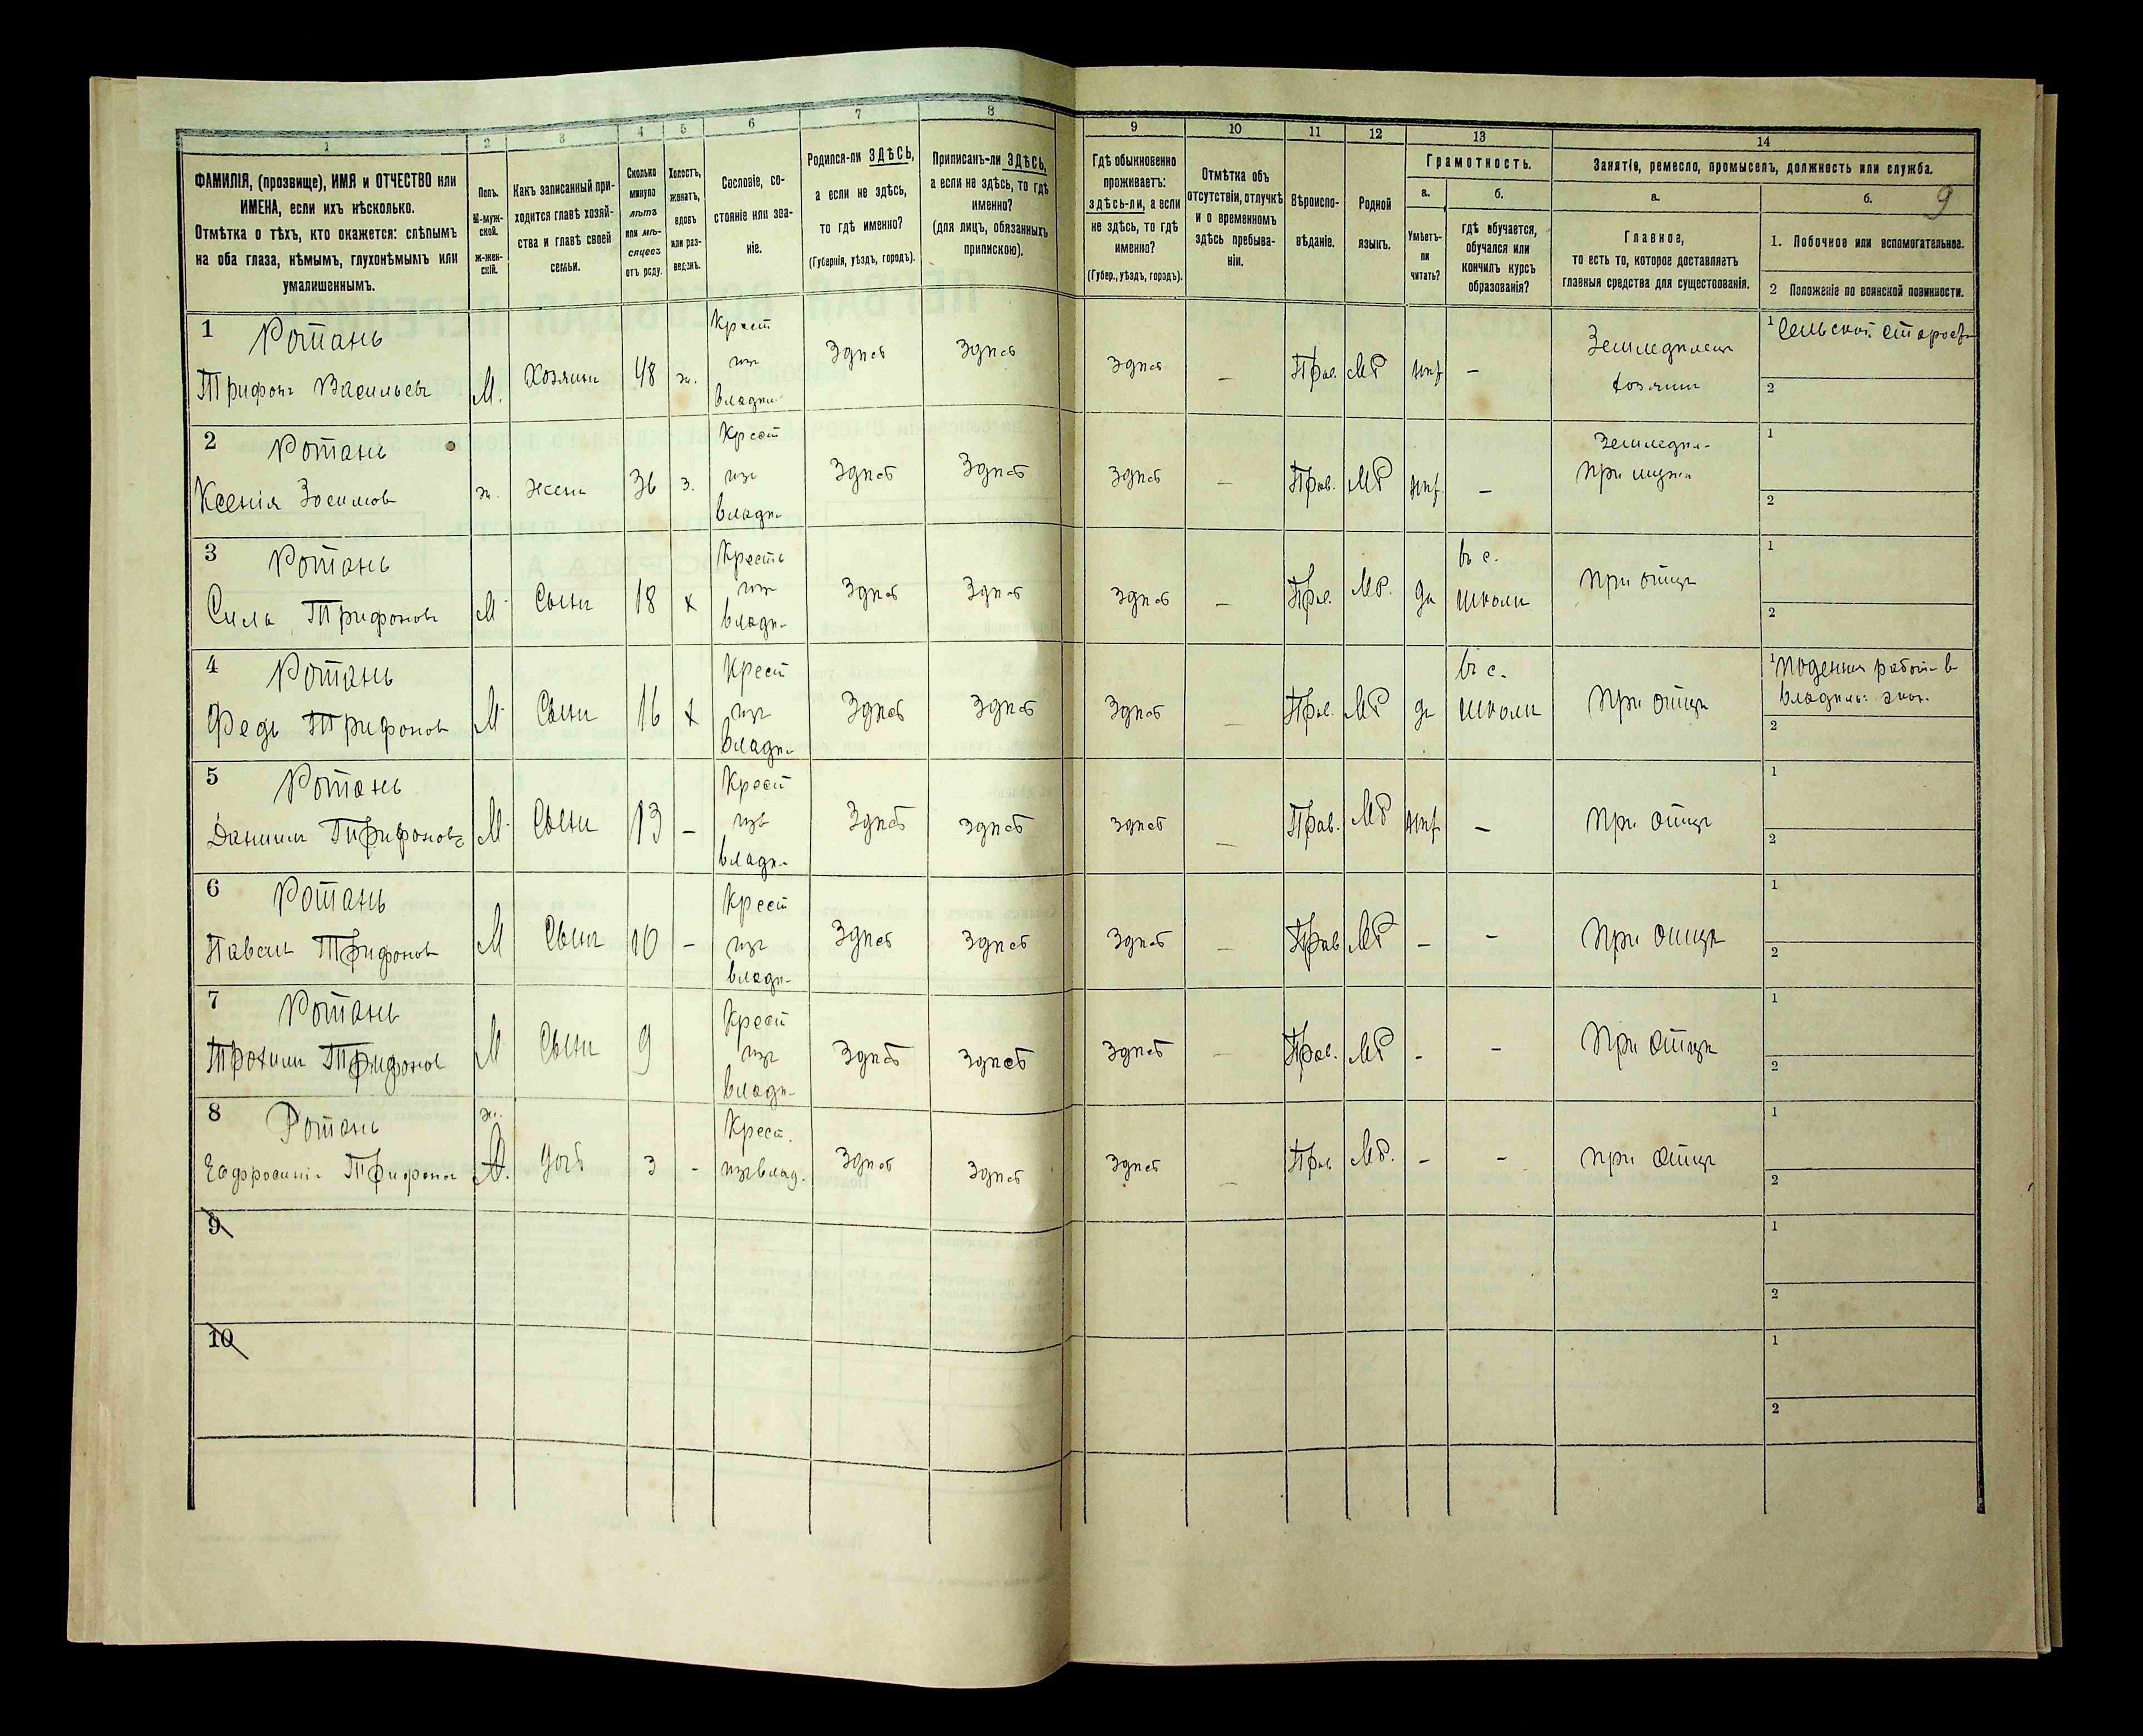 1 2 3 4 5 6 7 8 9 10 11 12 13 14
ФАМИЛІЯ, (прозвище), ИМЯ и ОТЧЕСТВО или
ИМЕНА, если ихъ нѣсколько.
Отмѣтка о тѣхъ, кто окажется: слѣпымъ
на оба глаза, нѣмымъ, глухонѣмымъ или
умалишеннымъ.
Полъ.
М-муж-
ской.
Ж-жен-
скій.
Какъ записанный при-
ходится главѣ хозяй-
ства и главѣ своей
семьи.
Сколько
минуло
лѣтъ
или мѣ-
сяцевъ
отъ роду.
Холостъ,
женатъ,
вдовъ
или раз-
веденъ.
Сословіе, со-
стояніе или зва-
ніе.
Родился-ли ЗДѢСЬ,
а если не здѣсь,
то гдѣ именно?
(Губернія, уѣздъ, городъ).
Приписанъ-ли ЗДѢСЬ,
а если не здѣсь, то гдѣ
именно?
(для лицъ, обязанныхъ
припискою).
Гдѣ обыкновенно
проживаетъ:
здѣсь-ли, а если
не здѣсь, то гдѣ
именно?
(Губер., уѣздъ, городъ).
Отмѣтка объ
отсутствіи, отлучкѣ
и о временномъ
здѣсь пребыва-
ніи.
Вѣроиспо-
вѣданіе.
Родной
языкъ.
Грамотность.
а.
Умѣетъ-
ли
читать?
б.
гдѣ обучается,
обучался или
кончилъ курсъ
образованія?
Занятія, ремесло, промыселъ, должность или служба.
а.
Главное,
то есть то, которое доставляетъ
главныя средства для существованія.
б.
9
1. Побочное или вспомогательное.
2 Положеніе по воинской повинности.
1 Ротань
Трифонъ Васильевъ М. Хозяинъ 48 ж.
Крест
изъ
владѣ-
Здѣсь Здѣсь Здѣсь – Прав. МР нѣт –
Земледѣлецъ
хозяинъ
1 Сельскій староста
2
2 Ротань
Ксенія Зосимов ж. жена 36 з.
Крест
изъ
владѣ-
Здѣсь Здѣсь Здѣсь – Прав. МР нѣт –
Земледѣл-
при мужѣ
1
2
3 Ротань
Сила Трифоновъ М Сынъ 18 х
Кресть
изъ
владѣ-
Здѣсь Здѣсь Здѣсь – Прав. МР. да
въ с.
школѣ
При отцѣ
1
2
4 Ротань
Федъ Трифоновъ М Сынъ 16 х
Крест
изъ
владѣ-
Здѣсь Здѣсь Здѣсь – Прав. МР да
въ с.
школѣ
При отцѣ
1 подення работ- в
владѣль: экон.
2
5 Ротань
Даниилъ Трифоновъ М Сынъ 13 –
Крест
изъ
владѣ-
Здѣсь Здѣсь Здѣсь – Прав. МР нѣт –
При отцѣ
1
2
6 Ротань
Павелъ Трифоновъ М Сынъ 10 –
Крест
изъ
владѣ-
Здѣсь Здѣсь Здѣсь – Прав МР – –
При отцѣ
1
2
7 Ротань
Трохимъ Трифонов М Сынъ 9
Крест
изъ
владѣ-
Здѣсь Здѣсь Здѣсь – Прав. МР – –
При отцѣ
1
2
8 Ротань
Ефросинія Трифонов ж. дочь 3 –
Крест.
изъ влад.
Здѣсь Здѣсь Здѣсь – Прав МР. – –
При отцѣ
1
2
9
1
2
10
1
2